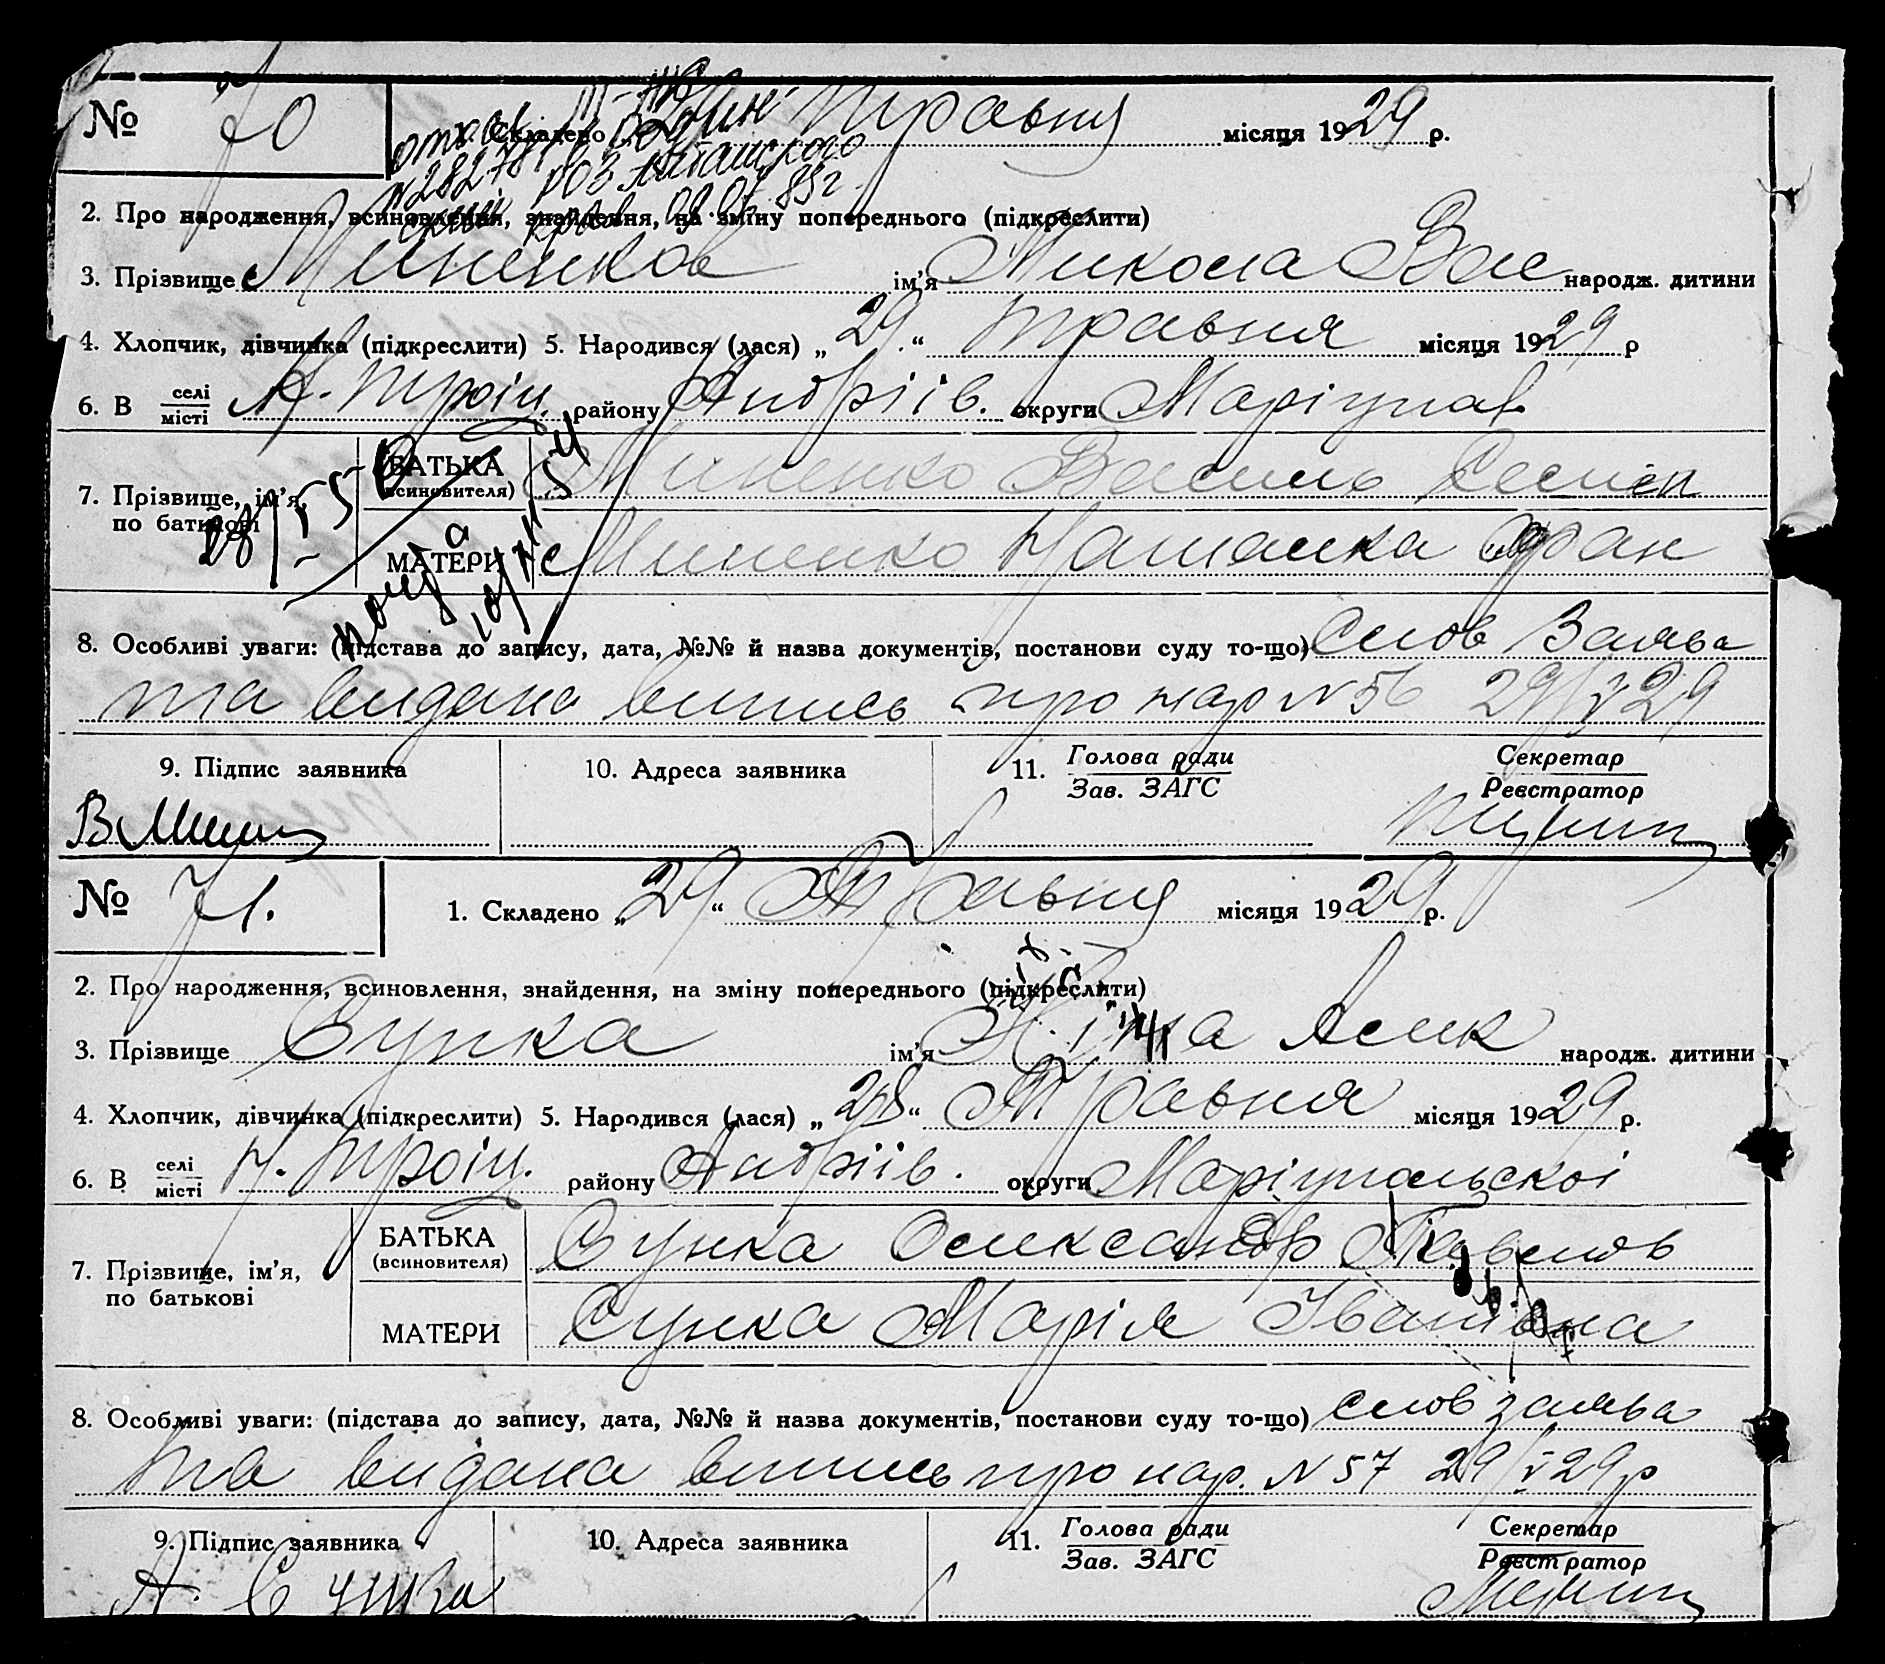 № 70
1. Складено травня місяця 1929 р.
2. Про народження, всиновлення, знайдення, на зміну попереднього (підкреслити)
3. Прізвище Миненков ім’я Микола Вас народж. дитини
4. Хлопчик, дівчинка (підкреслити) 5. Народився (лася) „29“ травня місяця 1929 р
6. В селі місті Н. Троіц. району Андріів. округи Маріупол
7. Прізвище, ім’я, по батькові
БАТЬКА (всиновителя) Миненко Василь
МАТЕРИ Миненко Наталка Фран
28/V-5
10/VII 54
8. Особливі уваги: (підстава до запису, дата, №№ й назва документів, постанови суду то-що) Слов Заява
та видана випись про нар N 56 29/V 29
9. Підпис заявника 10. Адреса заявника 11. Голова ради Зав. ЗАГС Секретар Реєстратор
№ 71.
1. Складено „29“ Травня місяця 1929 р.
2. Про народження, всиновлення, знайдення, на зміну попереднього (підкреслити)
3. Прізвище Сунка ім’я Ніна Алек народж. дитини
4. Хлопчик, дівчинка (підкреслити) 5. Народився (лася) „28“ Травня місяця 1929 р.
6. В селі місті Н. Троіц. району Андріів. округи Маріупольскоі
7. Прізвище, ім’я, по батькові
БАТЬКА (всиновителя) Сунка Олександр Павлов
МАТЕРИ Сунка Марія Іванівна
8. Особливі уваги: (підстава до запису, дата, №№ й назва документів, постанови суду то-що) слов заява
та видана випись про нар. N 57 29/V 29р
9. Підпис заявника 10. Адреса заявника 11. Голова ради Зав. ЗАГС Секретар Реєстратор
А. Сунка